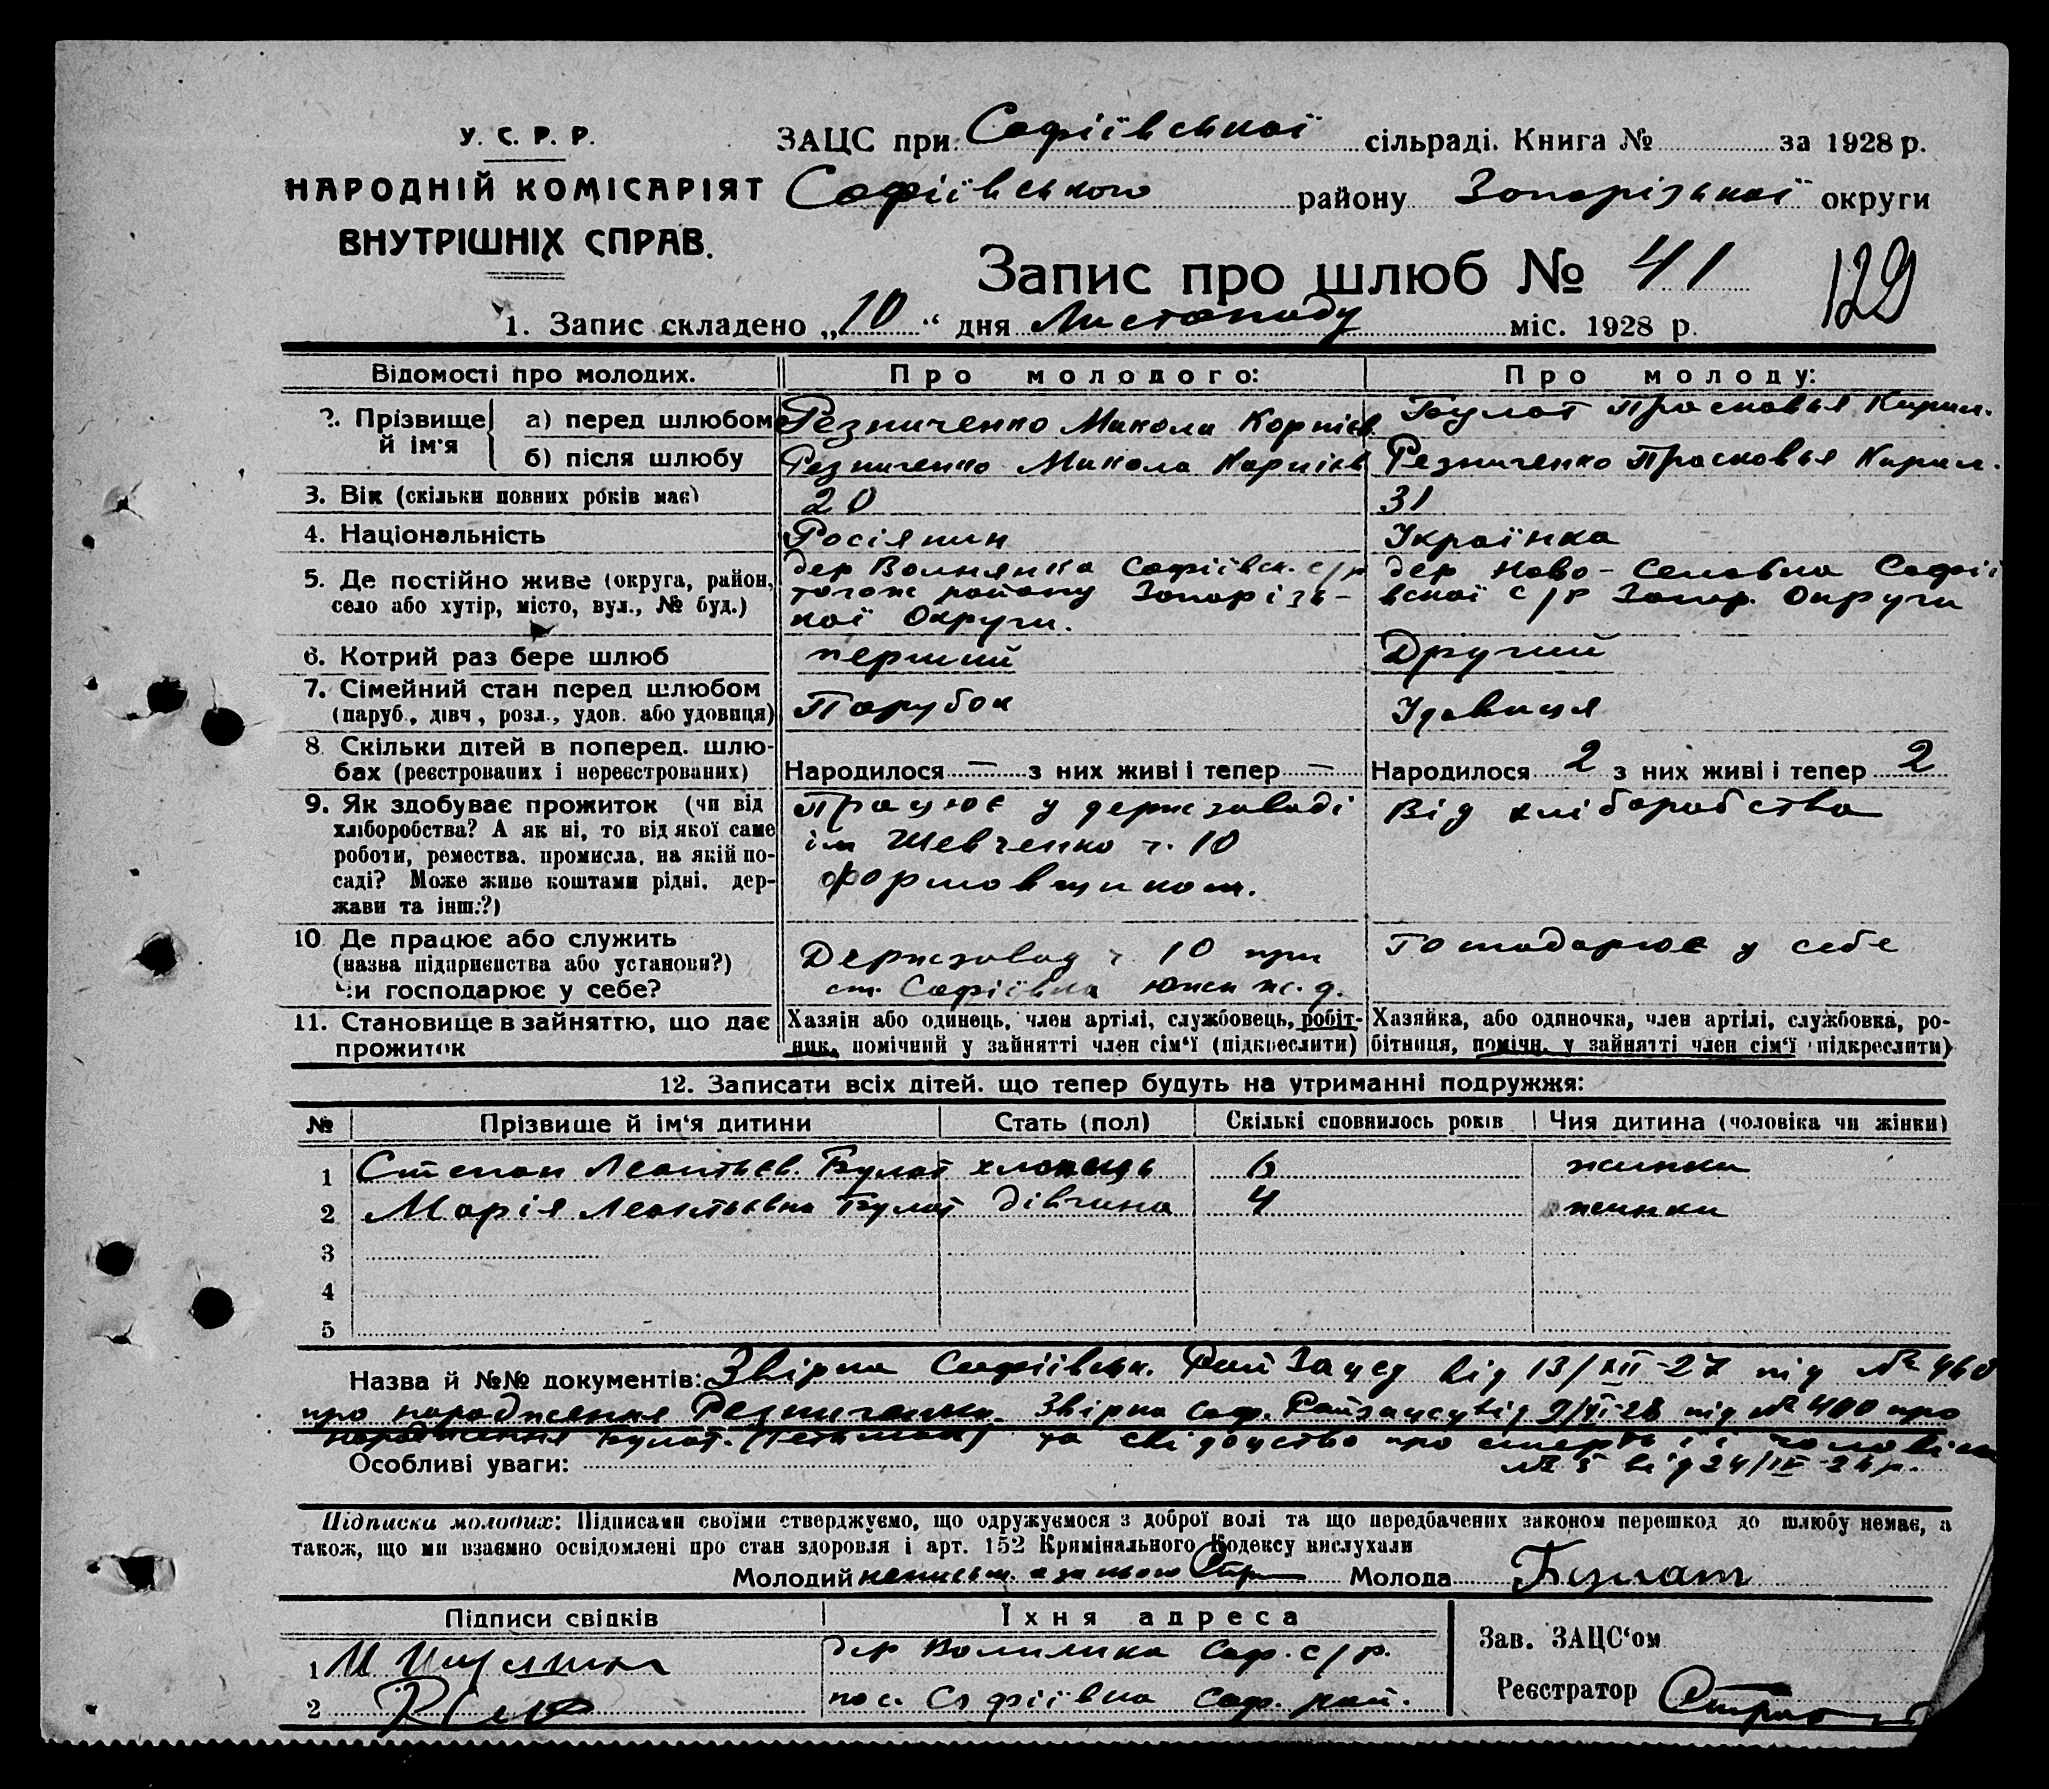 У. С. Р. Р.
НАРОДНІЙ КОМІСАРІЯТ
ВНУТРІШНІХ СПРАВ.
ЗАЦС при Софіївської сільраді. Книга № за 1928 р.
Софіївського району Запорізької округи
Запис про шлюб № 41
129
1. Запис складено „10“ дня Листопаду міс. 1928 р.
Відомості про молодих. Про молодого: Про молоду:
2. Прізвище й ім'я
а) перед шлюбом Резниченко Микола Корніев. Булат Прасковья Кирил.
б) після шлюбу Резниченко Микола Карніев Резниченко Прасковья Кирил.
3. Вік (скільки повних років має) 20 31
4. Національність Росіянин Українка
5. Де постійно живе (округа, район, село або хутір, місто, вул., № буд.)
дер Волнянка Софіївск. с/р
того ж району Запорізь-
кої Округи.
дер Ново-Селовка Софії
вскої с/р Запор. Округи
6. Котрий раз бере шлюб перший Другий
7. Сімейний стан перед шлюбом Парубок Удовиця
(паруб., дівч., розл., удов. або удовиця)
8. Скільки дітей в поперед. шлю-
бах (реєстрованих і нереєстрованих) Народилося — з них живі і тепер — Народилося 2 з них живі і тепер 2
9. Як здобуває прожиток (чи від
хліборобства? А як ні, то від якої саме
роботи, ремества, промисла, на якій по-
саді? Може живе коштами рідні, дер-
жави та інш.?)
Працює у держзаводі
ім Шевченко ч. 10
формовщиком.
Від хліборобства
10. Де працює або служить
(назва підприємства або установи?)
Чи господарює у себе?
Держзавод ч. 10 при
ст. Софіївка Южн ж. д.
Господарює у себе
11. Становище в зайняттю, що дає
прожиток
Хазяін або одинець, член артілі, службовець, робіт-
ник, помічний у зайнятті член сім'ї (підкреслити)
Хазяйка, або одиночка, член артілі, службовка, ро-
бітниця, помічн. у зайнятті член сім'ї (підкреслити)
12. Записати всіх дітей, що тепер будуть на утриманні подружжя:
№ Прізвище й ім'я дитини Стать (пол) Скількі сповнилось років Чия дитина (чоловіка чи жінки)
1 Степан Леонтьєв. Булат хлопець 6 жинки
2 Марія Леонтьевна Булат дівчина 4 жинки
3
4
5
Назва й №№ документів: Звірка Софіївськ. Рай Зацсу від 13/XII-27 під №
про народження Резниченка. Звірка Соф. Райзацсу від 9/XI-28 під № 400 про
народження Булат та свідоцтво про смерть її чоловіка
Особливі уваги: № 5 від
Підписка молодих: Підписами своїми стверджуємо, що одружуємося з доброї волі та що передбачених законом перешкод до шлюбу немає, а
також, що ми взаємно освідомлені про стан здоровля і арт. 152 Крямінального Кодексу вислухали
Молодий неписьм. а за нього Молода Булат
Підписи свідків Їхня адреса
1 дер Волнянка Соф. с/р.
2 пос. Софіївка Соф. рай.
Зав. ЗАЦС'ом
Реєстратор